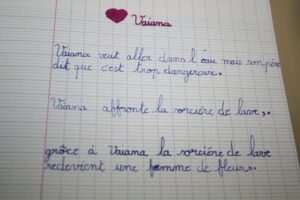 Vaiana
Vaiana veut aller dans l'eau mais son père
dit que c'est trop dangereuse.
Vaiana affronte la sorcière de lave.
grâce à Vaiana la sorcière de lave
redevient une femme de fleurs.